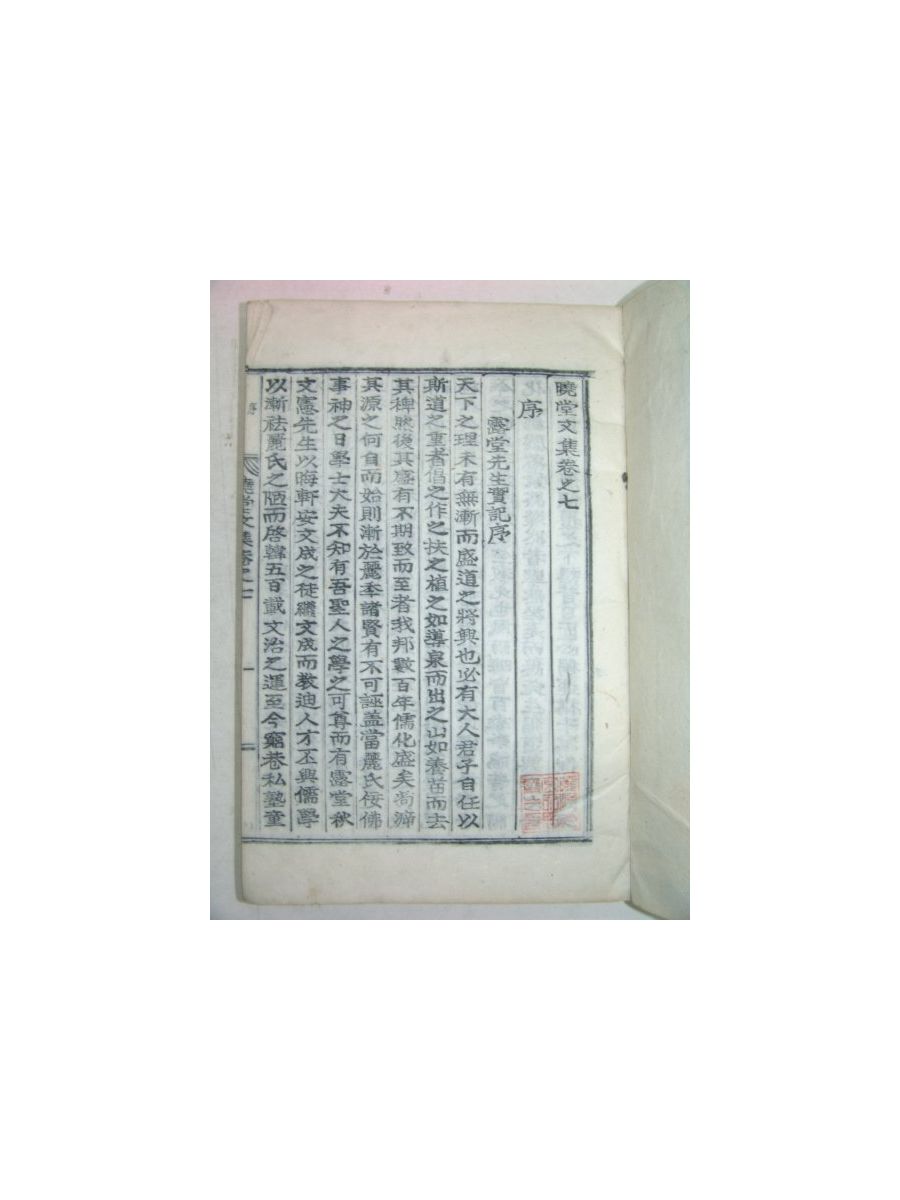 曉堂文集卷之七
序
露堂先生實記序
天下之理未有無漸而盛道之將興也必有大人君子自任以
斯道之重者倡之作之扶之植之如導泉而出之山如養苗而去
其稗然後其盛有不期致而至者我邦數百年儒化盛矣尚遡
其源之何自而始則漸於麗季諸賢有不可誣盖當麗氏佞佛
事神之日學士大夫不知有吾聖人之學之可尊而有露堂秋
文憲先生以晦軒安文成之徒繼文成而教迪人才丕興儒學
以漸祛麗氏之陋而啓韓五百載文治之運至今窮巷私塾童